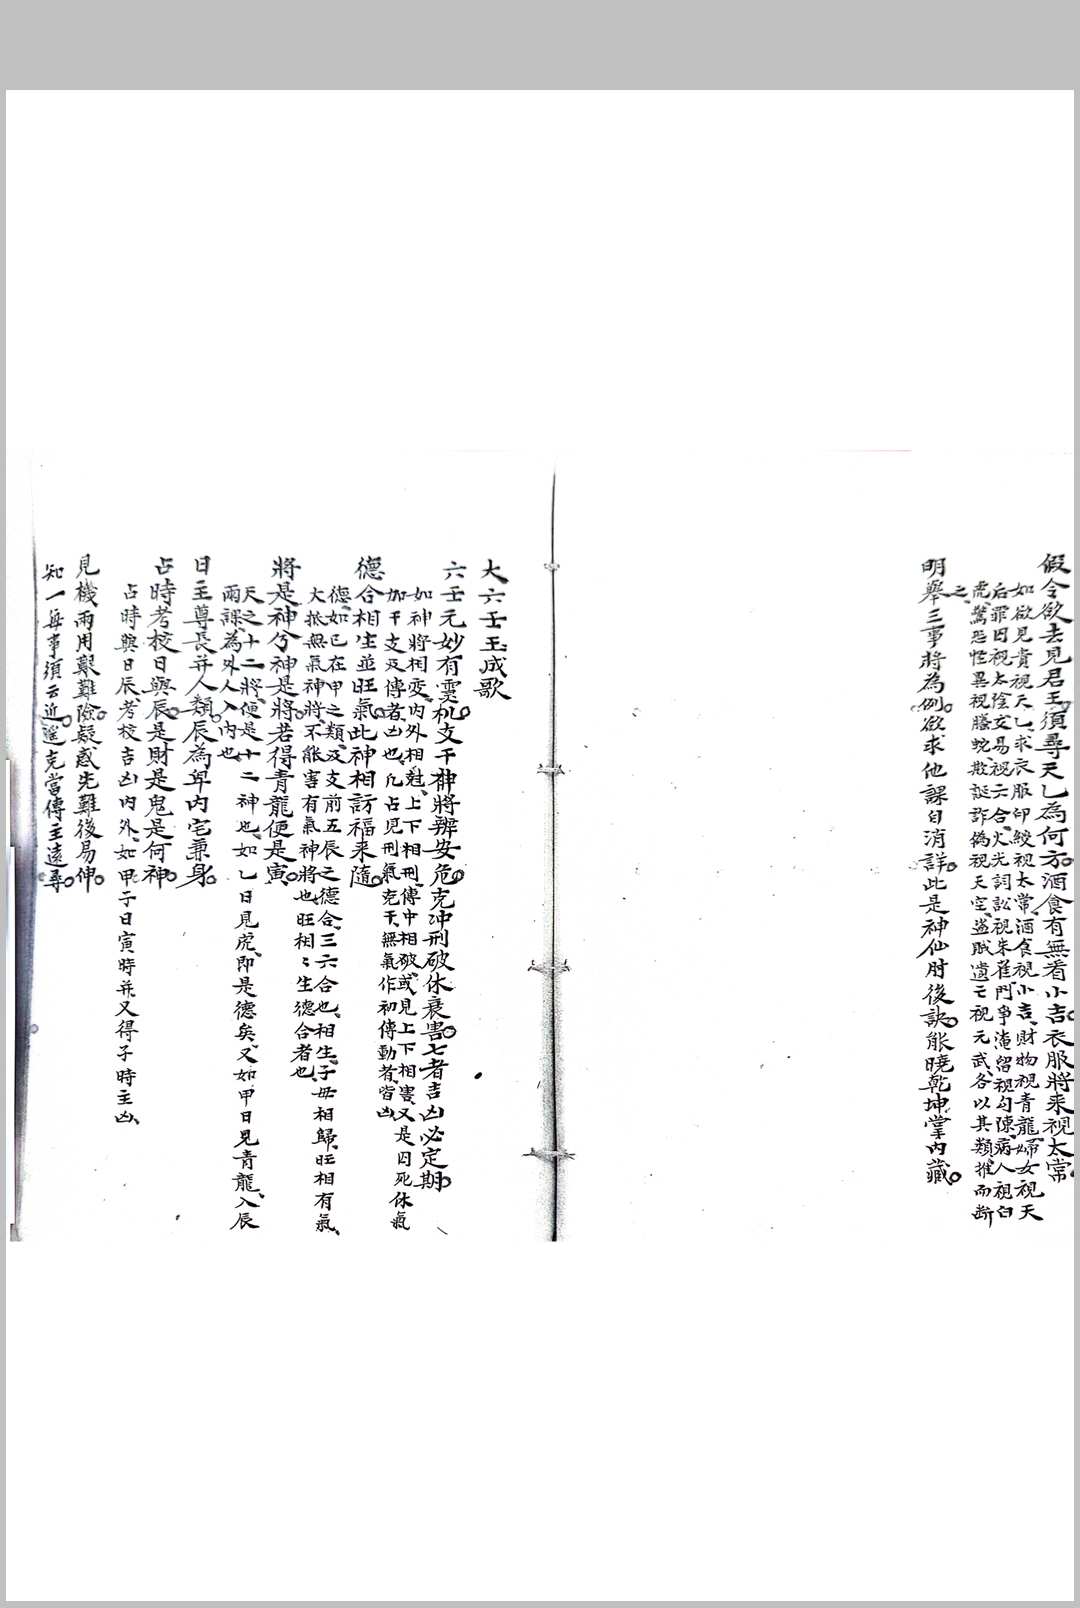 假令欲去見君王須尋天乙為何方酒食有無看小吉衣服將来視太常
如欲見貴視天乙、求衣服印綬視太常、酒食視小吉、財物視青龍、婦女視天
后罪因視太陰交易視六合、火光詞訟視朱雀、鬥爭淹留視勾陳、病人視白
虎、驚恐怪異視螣蛇、欺誕詐偽視天空、盗賊遺亡視元武、各以其類推而断
之、
明舉三事將為例欲求他課自消詳此是神仙肘後訣能曉乾坤掌內藏
大六壬玉成歌
六壬元妙有靈机支干神將辨安危克冲刑破休衰害七者吉凶必定期
如神將相変、内外相尅、上下相刑、傳中相破、或見上下相害、又是囚死休氣
加干支及傳者、凶也、凡占見刑氣克干、無氣作初傳動者、皆凶、
德合相生並旺氣此神相訪福来隨
德、如已在甲之類、及支前五辰之德合、三六合也、相生、子毋相歸、旺相有氣、
大抵無氣神將、不能害有氣神將也、旺相相生德合者也、
將是神兮神是將若得青龍便是寅
天之十二將、便是十二神也、如乙日見虎、即是德矣、又如甲日見青龍、入辰
兩課、為外人入内也
日主尊長并人類辰為年内宅兼身
占時考校日與辰是財是鬼是何神
占時與日辰考校吉凶内外、如甲子日寅時并又得子時主凶、
見機兩用艱難險疑惑先難後易伸
知一每事須云近遥克當傳主遠尋